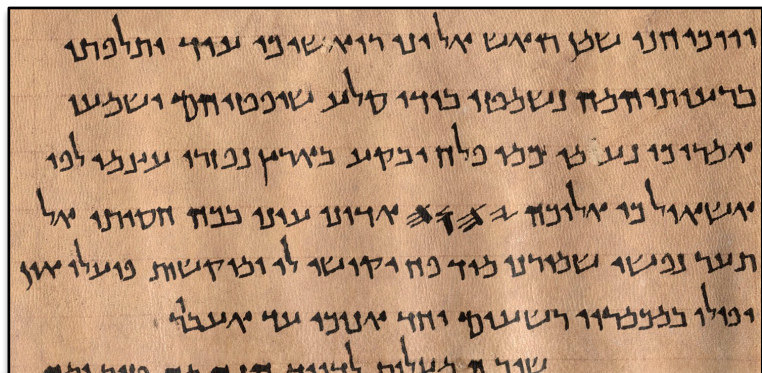 ויוכיחני שמן רואש אל יני רואשי כי עוד ותפלתי
ברעותיהמה נשמטו בידי סלע שופטיהם ושמעו
אמרי כי נעמו כמו פלח ובקע בארץ נפזרו עצמי לפי
שאול כי אליכה 𐤉𐤄𐤅𐤄 אדוני עיני בכה חסיתי אל
תער נפשי שמרני מיד פח יקושו לי ומוקשות פועלי און
יפולו במכמריו רשעים יחד אנוכי עד אעבור
שיר המעלות לדויד הנה מה טוב ומה